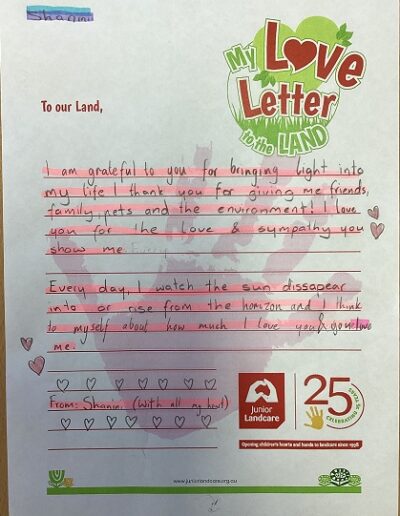 Shanini
My Love
Letter
to the LAND
To our Land,
I am grateful to you for bringing light into
my life I thank you for giving me friends,
family, pets and the environment! I love
you for the love & sympathy you
show me
Every day, I watch the sun dissapear
into or rise from the horizon and I think
to myself about how much I love you & you love
me.
From: Shanini (With all my heart)
Junior
Landcare
25 YEARS
CELEBRATING
Opening children's hearts and hands to landcare since 1998
www.juniorlandcare.org.au